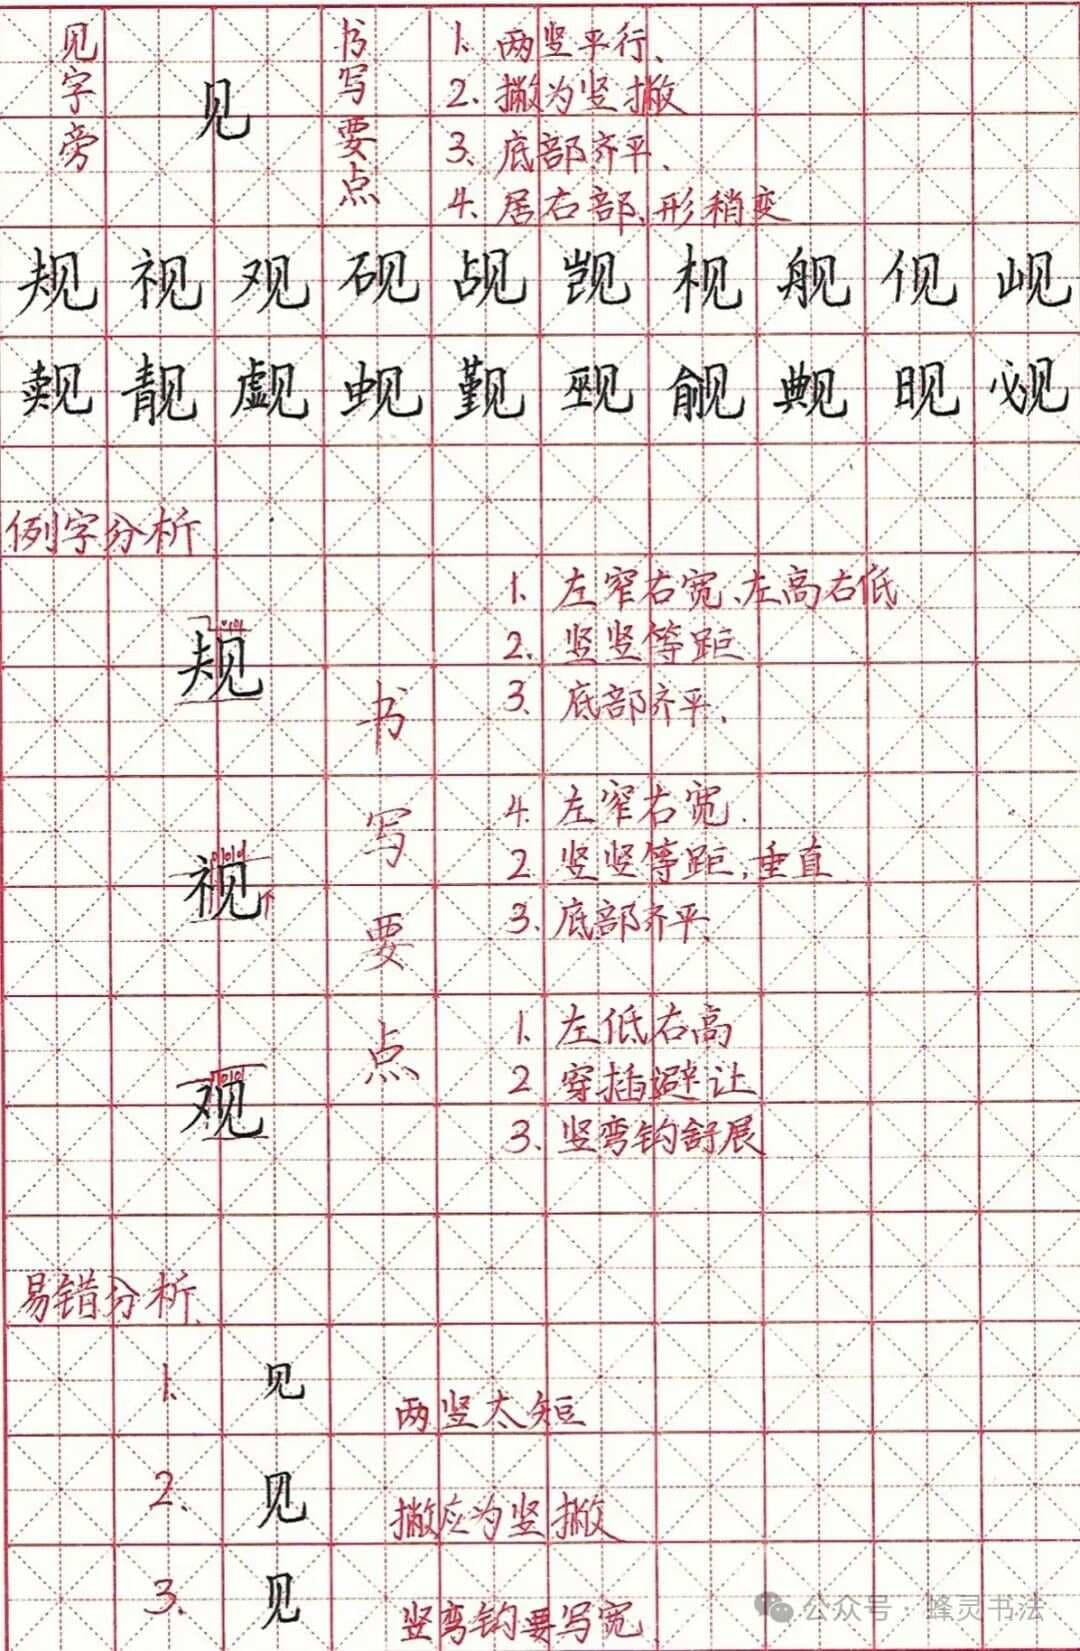 见字旁
见
书写要点
1. 两竖平行、
2. 撇为竖撇
3. 底部齐平、
4. 居右部、形稍变
规 视 观 砚 觇 凯 枧 舰 伣 岘
觌 靓 觑 蚬 觐 觋 觎 觍 晛 觅
例字分析
规
1. 左窄右宽、左高右低
2. 竖竖等距
3. 底部齐平、
书写要点
视
4. 左窄右宽.
2 竖竖等距,垂直
3. 底部齐平、
观
1. 左低右高
2 穿插避让
3. 竖弯钩舒展
易错分析、
1. 见 两竖太短
2. 见 撇应为竖撇
3. 见 竖弯钩要写宽
公众号 · 蜂灵书法